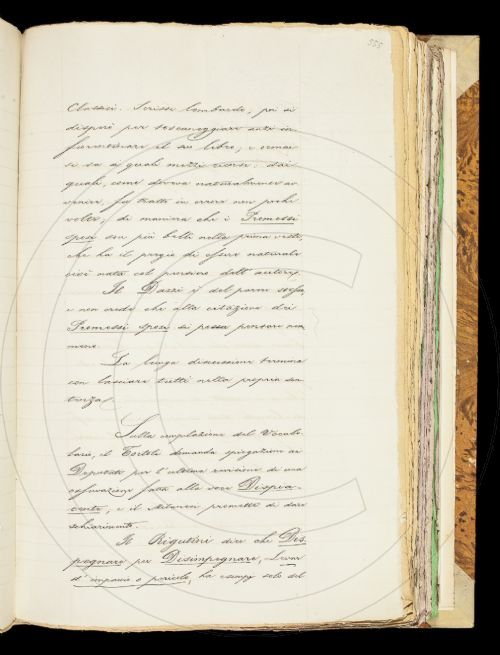 555
Classici. Scrisse lombardo, poi si
disperò per toscaneggiare
il suo libro, e ormai
si sa a quali mezzi ricorse: dai
quali, come doveva naturalmente av-
venire, fu tratto in errore non poche
volte; di maniera che i Promessi
Sposi son più belli nella prima veste,
che ha il pregio di essere naturale
cioè nata col pensiero dell' autore.
Il Dazzi è del parer stesso,
e non crede che alla citazione dei
Promessi Sposi si possa pensare nem-
meno.
La lunga discussione termina
con lasciare tutti nella propria sen-
tenza.
Sulla compilazione del Vocabo-
lario, il Tortoli domanda spiegazione ai
Deputati per l'ultima revisione di una
osservazione fatta alla voce Dispia-
cente, e il Milanesi promette di dare
schiarimento.
Il Rigutini dice che Des-
pegnare per Desimpegnare, Levar
d'impaccio o pericolo, ha esempj solo del